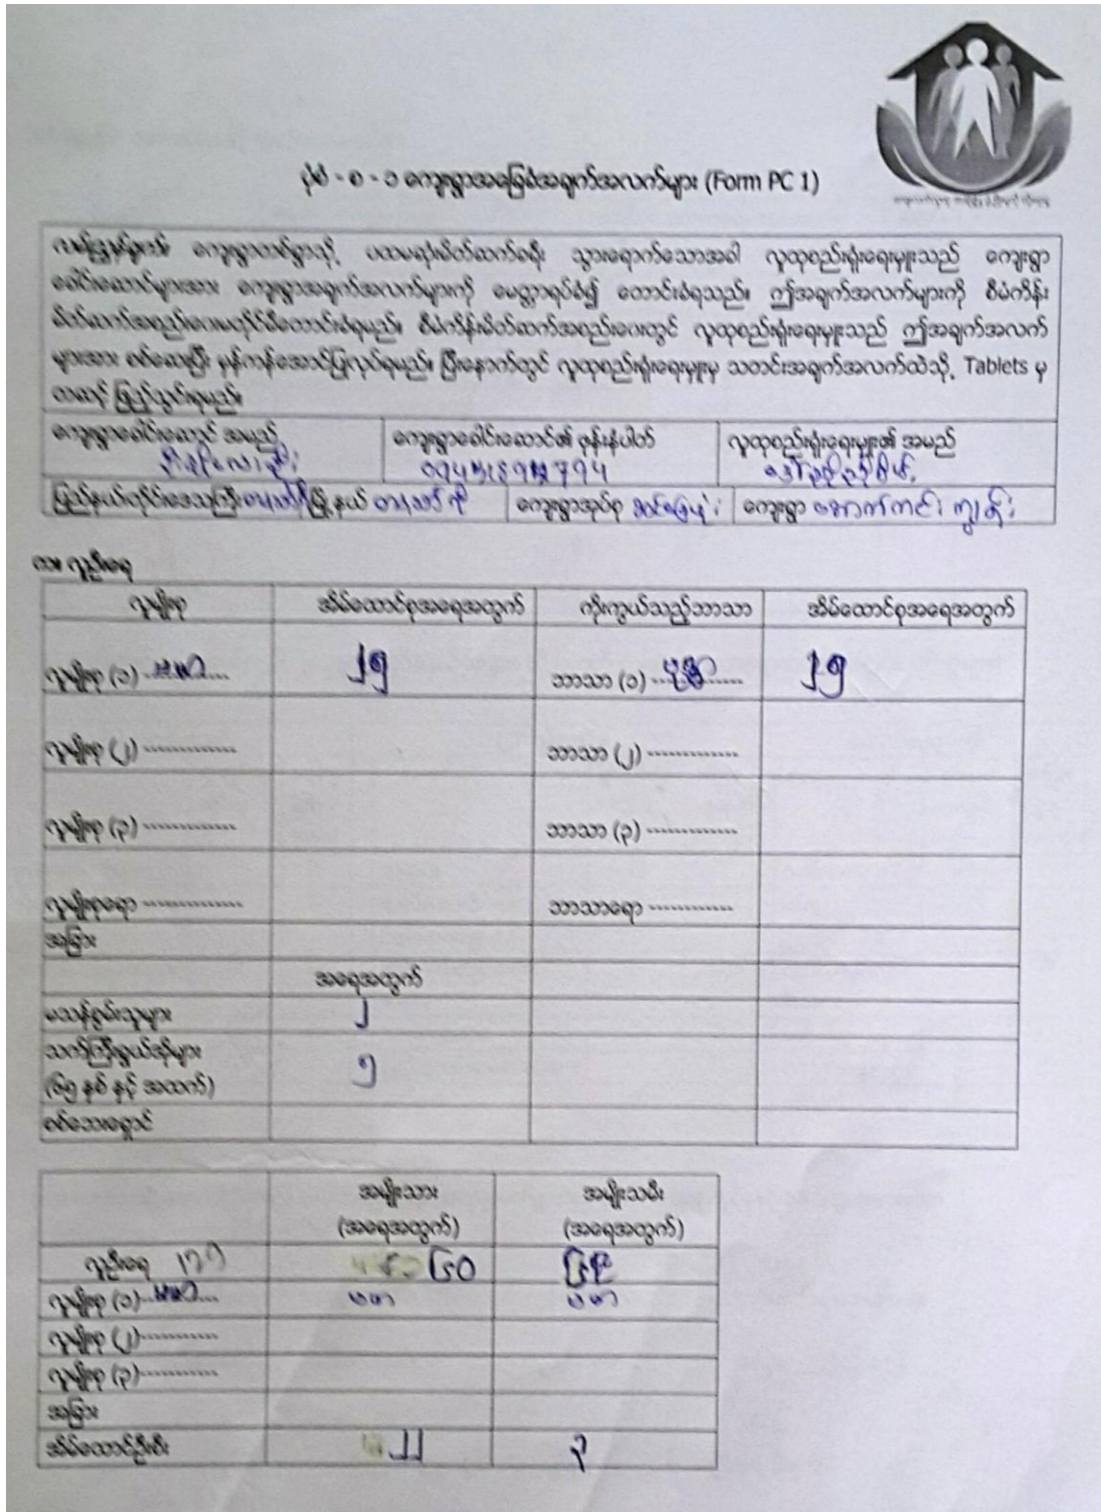 ပုံစံ - စ - ၁ ကျေးရွာအခြေခံအချက်အလက်များ (Form PC 1)
လမ်းညွှန်ချက်။ ကျေးရွာတစ်ရွာသို့ ပထမဆုံးမိတ်ဆက်ခရီး သွားရောက်သောအခါ လူထုစည်းရုံးရေးမှူးသည် ကျေးရွာ
ခေါင်းဆောင်များအား ကျေးရွာအချက်အလက်များကို မေတ္တာရပ်ခံ၍ တောင်းခံရသည်။ ဤအချက်အလက်များကို စီမံကိန်း
မိတ်ဆက်အစည်းအဝေးမတိုင်မီတောင်းခံရမည်။ စီမံကိန်းမိတ်ဆက်အစည်းအဝေးတွင် လူထုစည်းရုံးရေးမှူးသည် ဤအချက်အလက်
များအား စစ်ဆေးပြီး မှန်ကန်အောင်ပြုလုပ်ရမည်။ ပြီးနောက်တွင် လူထုစည်းရုံးရေးမှူးမှ သတင်းအချက်အလက်ထဲသို့ Tablets မှ
တဆင့် ဖြည့်သွင်းရမည်။
ကျေးရွာခေါင်းဆောင် အမည် ကျေးရွာခေါင်းဆောင်၏ ဖုန်းနံပါတ် လူထုစည်းရုံးရေးမှူး၏ အမည်
ပြည်နယ်/တိုင်းဒေသကြီး မြို့နယ် ကျေးရွာအုပ်စု ကျေးရွာ အောက်ကင်းကျွန်း
က။ လူဦးရေ
လူမျိုးစု အိမ်ထောင်စုအရေအတွက် ကိုးကွယ်သည့်ဘာသာ အိမ်ထောင်စုအရေအတွက်
လူမျိုးစု (၁) ဗမာ ၂၅ ဘာသာ (၁) ဗုဒ္ဓ ၂၅
လူမျိုးစု (၂) ------------- ဘာသာ (၂) -------------
လူမျိုးစု (၃) ------------- ဘာသာ (၃) -------------
လူမျိုးစုရော -------------- ဘာသာရော ------------
အခြား
အရေအတွက်
မသန်စွမ်းသူများ ၂
သက်ကြီးရွယ်အိုများ ၅
(၆၅ နှစ် နှင့် အထက်)
စစ်ဘေးရှောင်
အမျိုးသား အမျိုးသမီး
(အရေအတွက်) (အရေအတွက်)
လူဦးရေ
လူမျိုးစု (၁) ဗမာ ဗမာ ဗမာ
လူမျိုးစု (၂)-----------
လူမျိုးစု (၃)-----------
အခြား
အိမ်ထောင်ဦးစီး ၂၂ ၃